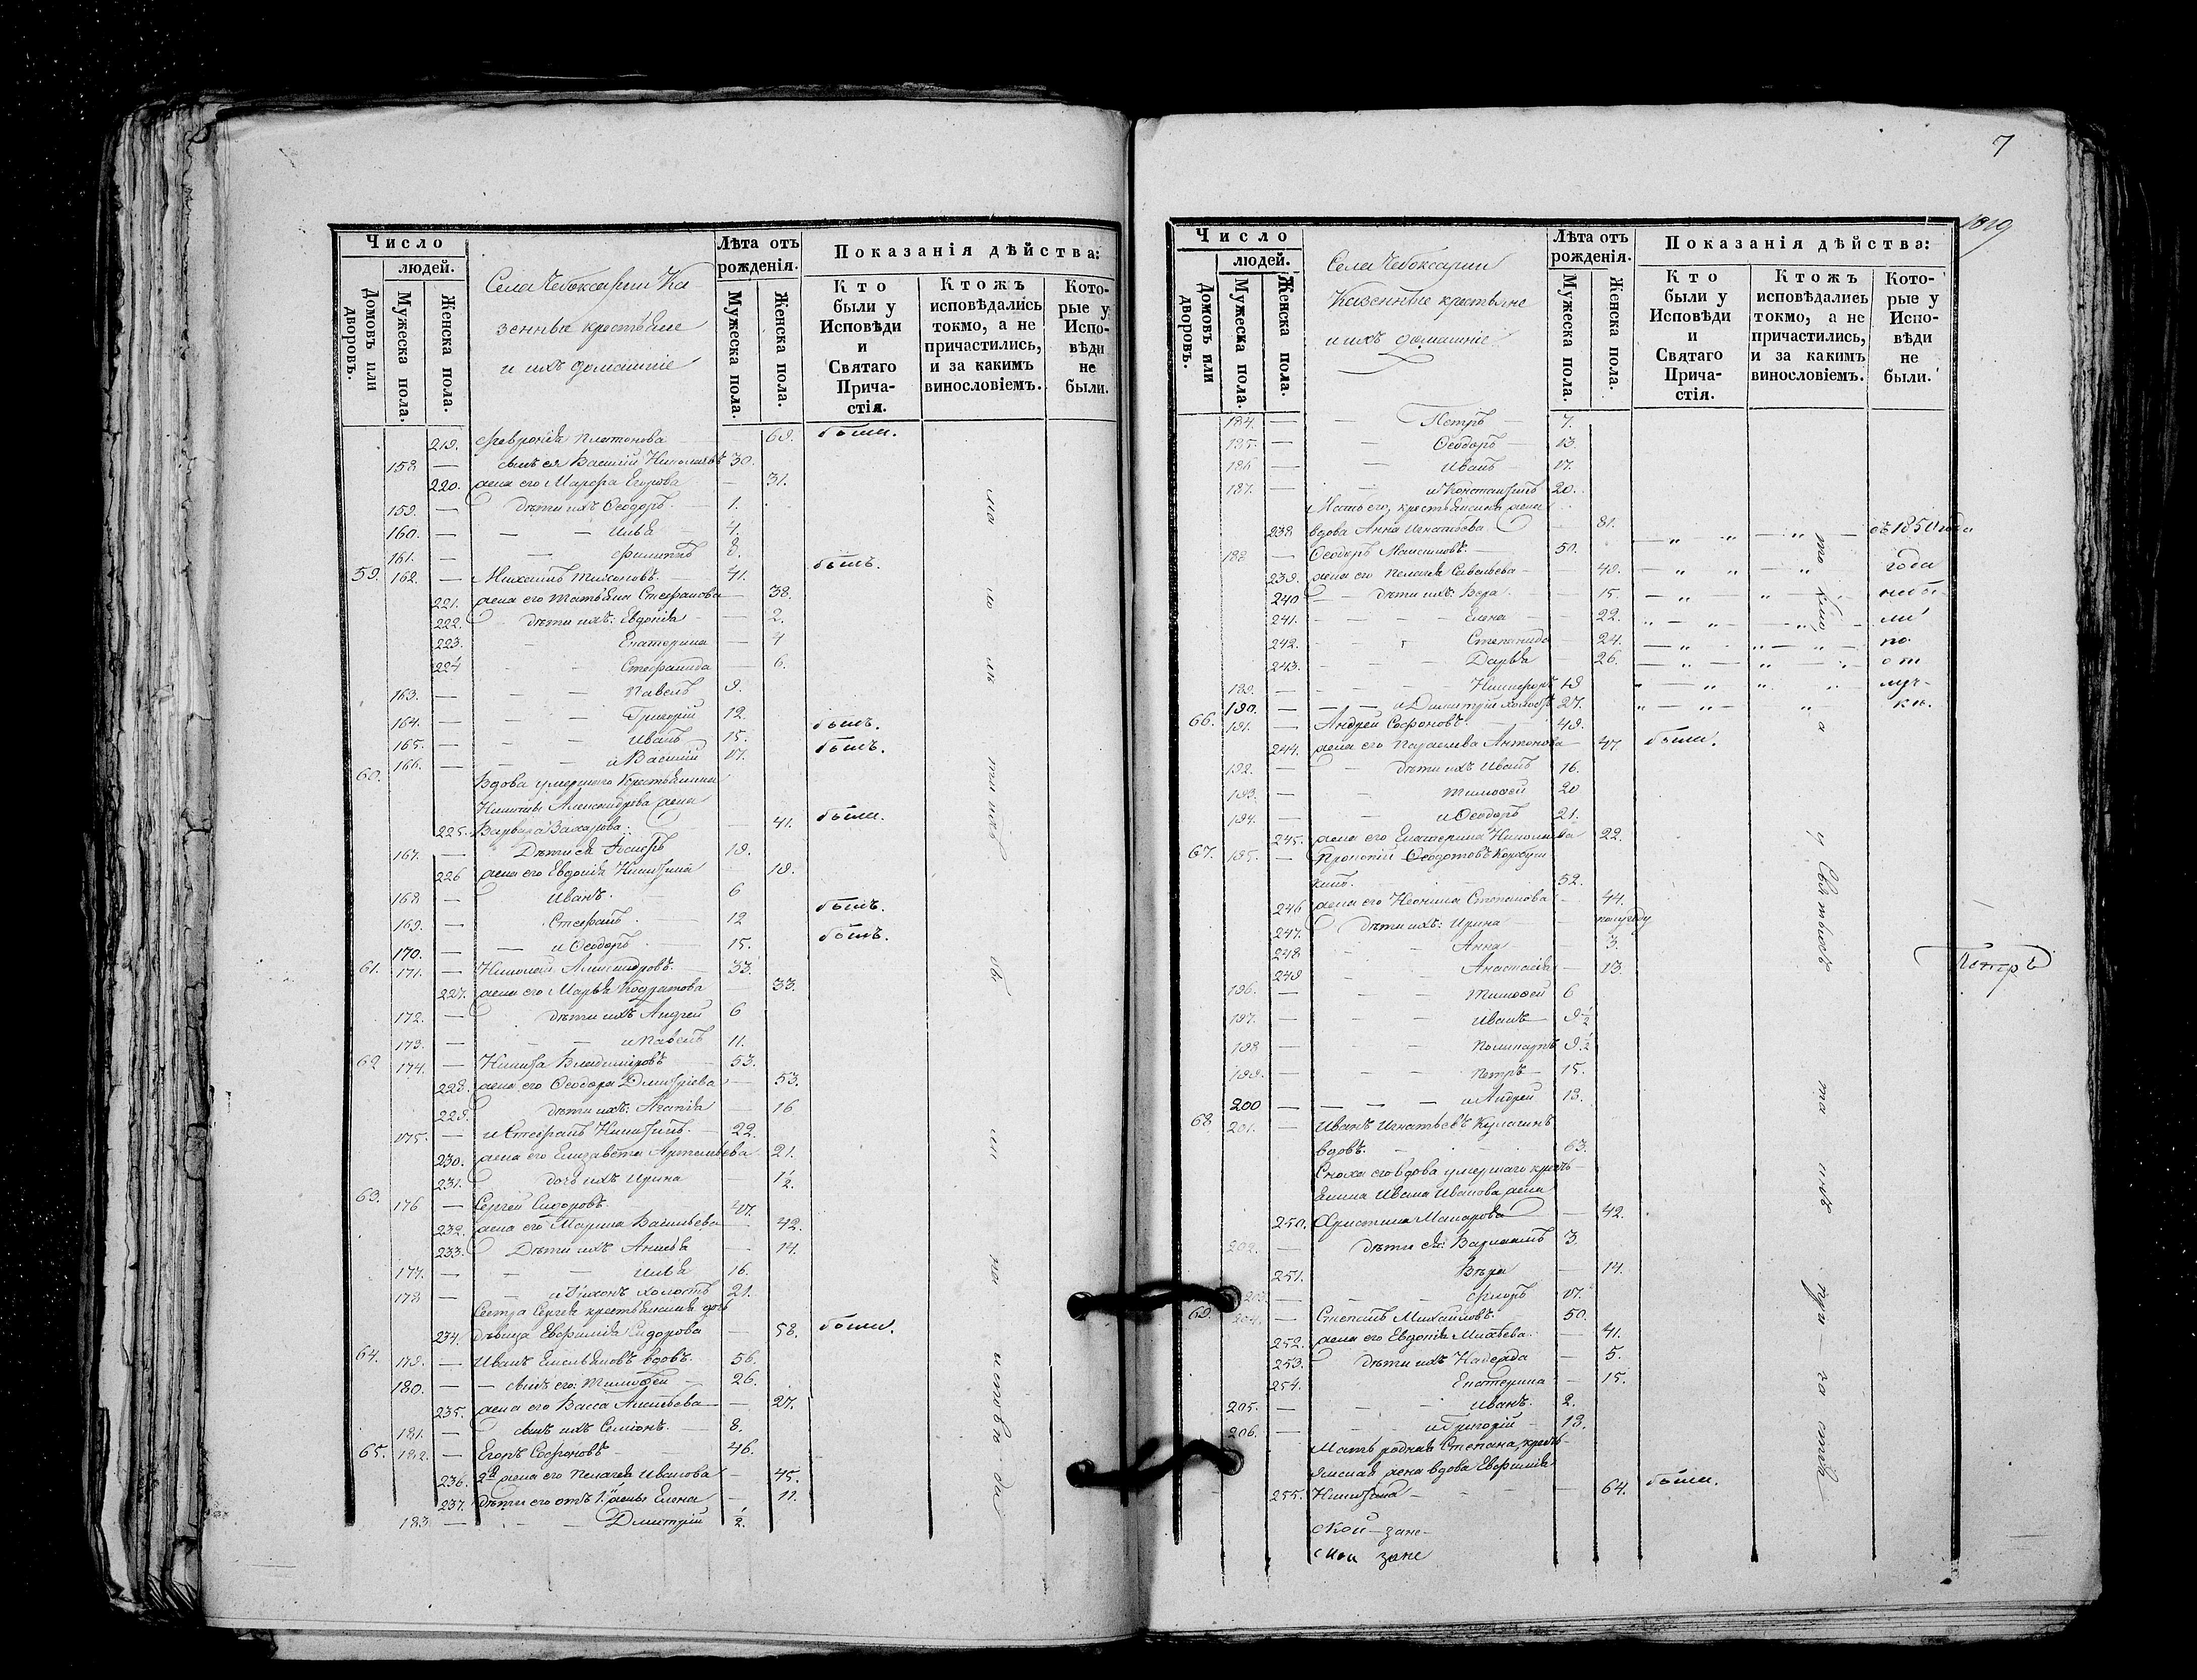 Число
людей.
Домовъ или дворовъ.
Мужеска пола.
Женска пола.
Села Чебоксарки Ка-
зенные крестьяне
и ихъ домашніе
Лѣта отъ рожденія.
Мужеска пола.
Женска пола.
Показанія дѣйства:
Кто были у Исповѣди и Святаго Прича-стія.
Ктожъ исповѣдались токмо, а не причастились, и за какимъ винословіемъ.
Кото-рые у Испо-вѣди не были.
219. Февронія Платонова 69. были.
158. — сынъ ея Василій Николаевъ 30.
220. жена его Марфа Егорова — 31.
159. — дѣти ихъ Ѳеодоръ 1.
160. — — — Илья 4.
161. — — Филиппъ 8.
59. 162. — Михаилъ Тихоновъ 41. былъ.
221. жена его Татьяна Стефанова — 38.
222. дѣти ихъ: Евдокія — 2.
223. Екатерина — 4
224 Стефанида — 6.
163. — — — Павелъ 9.
164. — — — Григорій 12. былъ.
165. — — — Иванъ 15. былъ.
166. — — — и Василій 17.
60. Вдова умершаго крестьянина
Никиты Александрова жена
225. Варвара Захарова: — 41. были.
167. — Дѣти ея Іосифъ 19.
226 жена его Евдокія Никитина 19.
168 — Иванъ 6
169. — Стефанъ 12 былъ.
170. — и Ѳеодоръ 15. былъ.
61. 171. — Николай Александровъ 33.
227. жена его Марья Кодратова — 33.
172. — дѣти ихъ Андрей 6
173. — — — и Павелъ 11.
62 174. — Никита Владиміровъ 53.
228. жена его Ѳеодора Дмитріева — 53.
229. дѣти ихъ: Агапія — 16
175. — и Стефанъ Никитинъ 22.
230. жена его Елизавета Артемьева 21.
231. дочь ихъ Ирина — 1/2.
63. 176 — Сергей Сидоровъ 47.
232. жена его Марина Васильева — 42.
233. Дѣти ихъ Анисья — 14.
177. — — — Илья 16.
178 — — и Тихонъ холостъ 21.
Сестра Сергея крестьянская дочь
234. дѣвица Евфимія Сидорова — 58. были.
64. 179. — Иванъ Емельяновъ вдовъ. 56.
180. — — сынъ его: Тимоѳей 26.
235. жена его Васса Алексѣева — 27.
181. — сынъ ихъ Семіонъ. 8.
65. 182. — Егоръ Софоновъ 46.
236. 2я жена его Пелагея Иванова — 45.
237. дѣти его отъ 1й жены Елена — 11.
183 — — — Дмитрій 1/2.
7
1819
Число
людей.
Домовъ или дворовъ.
Мужеска пола.
Женска пола.
Села Чебоксарки
Казенные крестьяне
и ихъ домашніе
Лѣта отъ рожденія.
Мужеска пола.
Женска пола.
Показанія дѣйства:
Кто были у Исповѣди и Святаго Прича-стія.
Ктожъ исповѣдались токмо, а не причастились, и за какимъ винословіемъ.
Кото-рые у Испо-вѣди не были.
184. — — Петръ 7.
185. — — Ѳеодоръ 13.
186 — — Иванъ 17.
187. — и Константинъ 20.
Мать его, крестьянская жена
238 вдова Анна Игнатьева — 81.
съ 1850 года
188 — Ѳеодоръ Максимовъ 50.
239. жена его Пелагея Савельева — 49. года
240 — дѣти ихъ: Вѣра — 15. небы-
241. — — — Елена — 22. ли
242. Степанида — 24. по
243. — — Дарья — 26. от
189. — — — Никифоръ 19 луч-
190. — — — и Димитрій холостъ 27. ки.
66. 191. — Андрей Софоновъ 49.
244. жена его Параскева Антонова — 47 были.
192. — дѣти ихъ Иванъ 16.
193. — — Тимоѳей 20
194. — — и Ѳеодоръ 21.
245. жена его Екатерина Николаева 22.
67. 195. — Прокопій Ѳеодотовъ
52.
246 жена его Неонила Степанова — 44.
247. дѣти ихъ: Ирина — полугоду
248 — Анна — 3.
249 — Анастасія — 13.
196. — — — Тимоѳей 6
Петръ
197. — — — Иванъ 9 1/2
198 — — — Поликарпъ 9 1/2
199. — — — Петръ 15.
200 — — — — и Андрей 18.
68. 201. — Иванъ Игнатьевъ Кулагинъ
вдовъ. 63.
Сноха его вдова умершаго кресть-
янина Ивана Иванова жена
250. Христина Макарова — 42.
202. — дѣти ея: Варлаамъ 3.
251. Вѣра — 14.
203. — — Флоръ 17.
69. 204. — Степанъ Михайловъ 50.
252. жена его Евдокія Матвѣева — 41.
253. дѣти ихъ Надежда — 5.
254. Екатерина — 15.
205. — — — Иванъ 2.
206. — — и Григорій 18.
Мать родная Степана, кресть-
янская жена вдова Евфимія
255. Никитина — — 64. были.
ской — зане-
ской зане